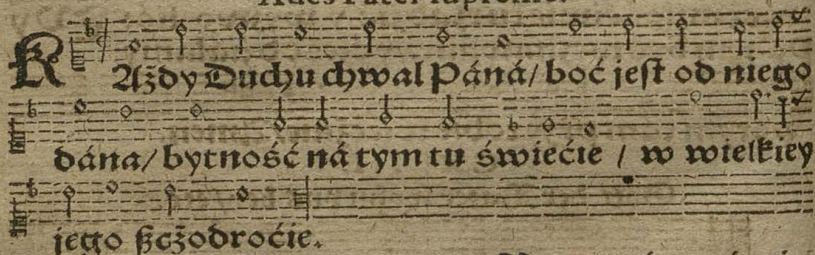 KAżdy Duchu chwal Páná/ boć jeſt od niego
dána/ bytność ná tym tu świećie / w wielkiey
jego ßcżodroćie.